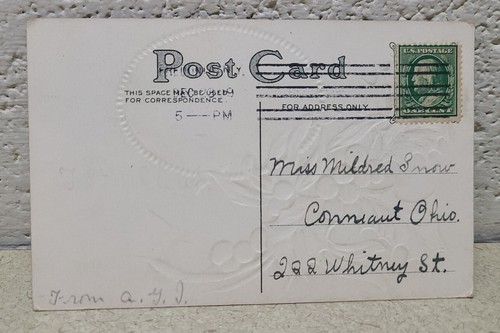 Post Card
THIS SPACE MAY BE USED
FOR CORRESPONDENCE.
5 — PM
FOR ADDRESS ONLY.
U.S. POSTAGE
ONE CENT
Miss Mildred Snow
Conneaut Ohio.
222 Whitney St.
From A.